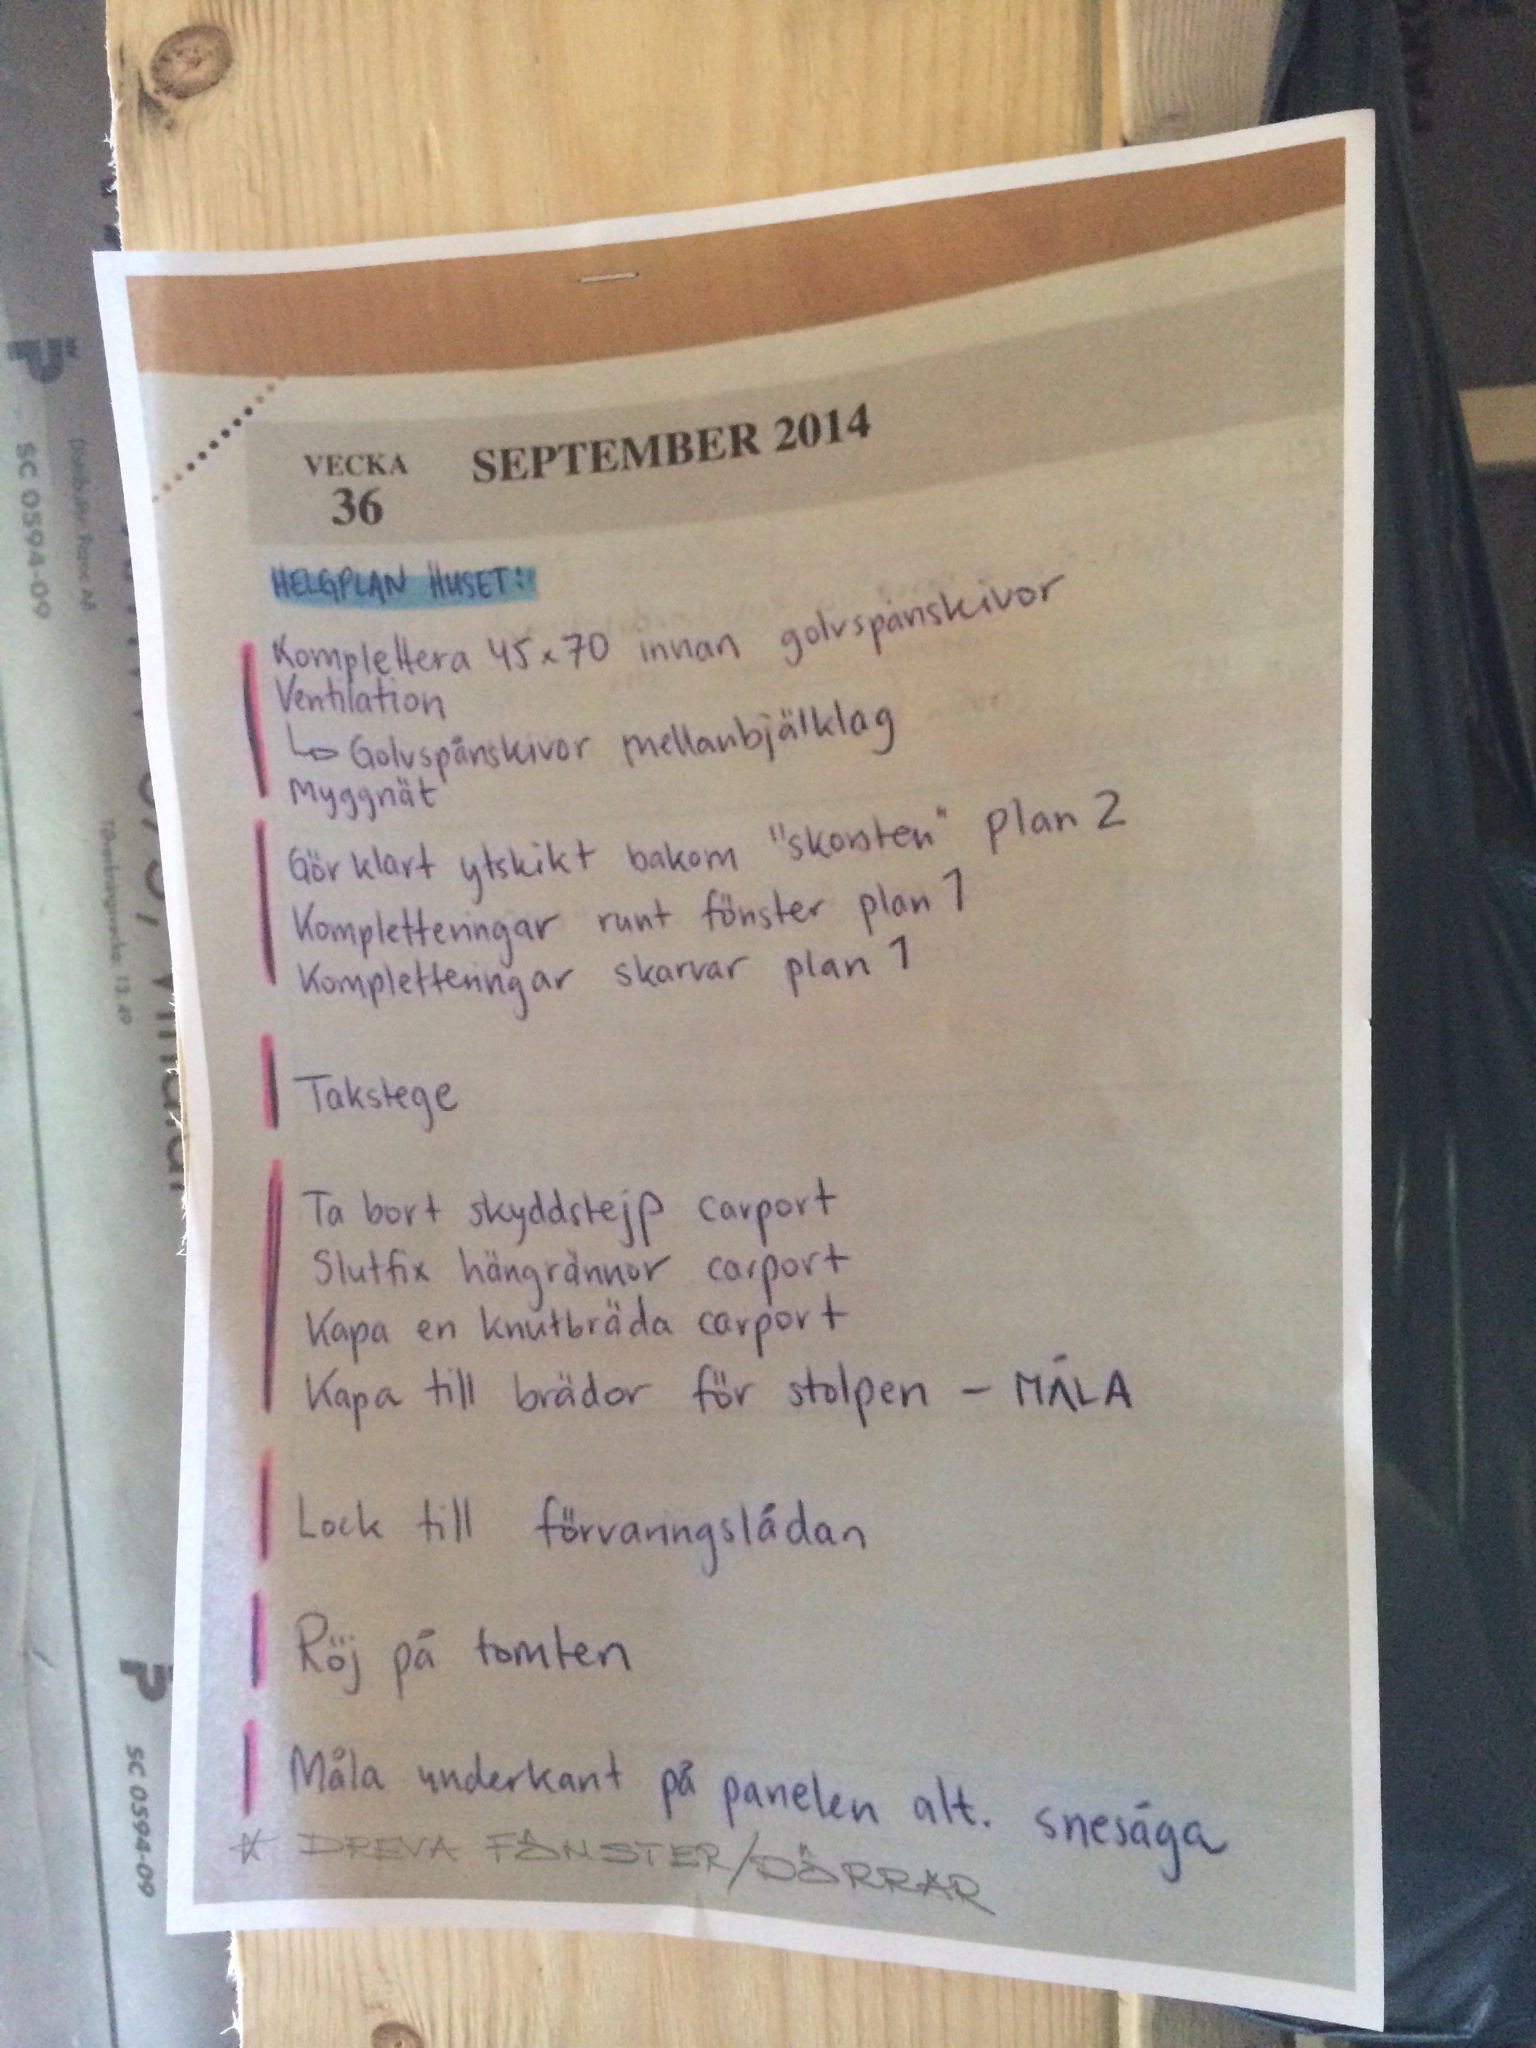 VECKA
36
SEPTEMBER 2014
HELGPLAN HUSET:
Komplettera 45x70 innan golvspånskivor
Ventilation
↳ Golvspånskivor mellanbjälklag
Myggnät
Gör klart ytskikt bakom "skorsten" plan 2
Kompletteringar runt fönster plan 1
Kompletteringar skarvar plan 1
Takstege
Ta bort skyddstejp carport
Slutfix hängrännor carport
Kapa en knutbräda carport
Kapa till brädor för stolpen - MÅLA
Lock till förvaringslådan
Röj på tomten
Måla underkant på panelen alt. snesåga
* DREVA FÖNSTER/DÖRRAR
SC 0594-09
SC 0594-09